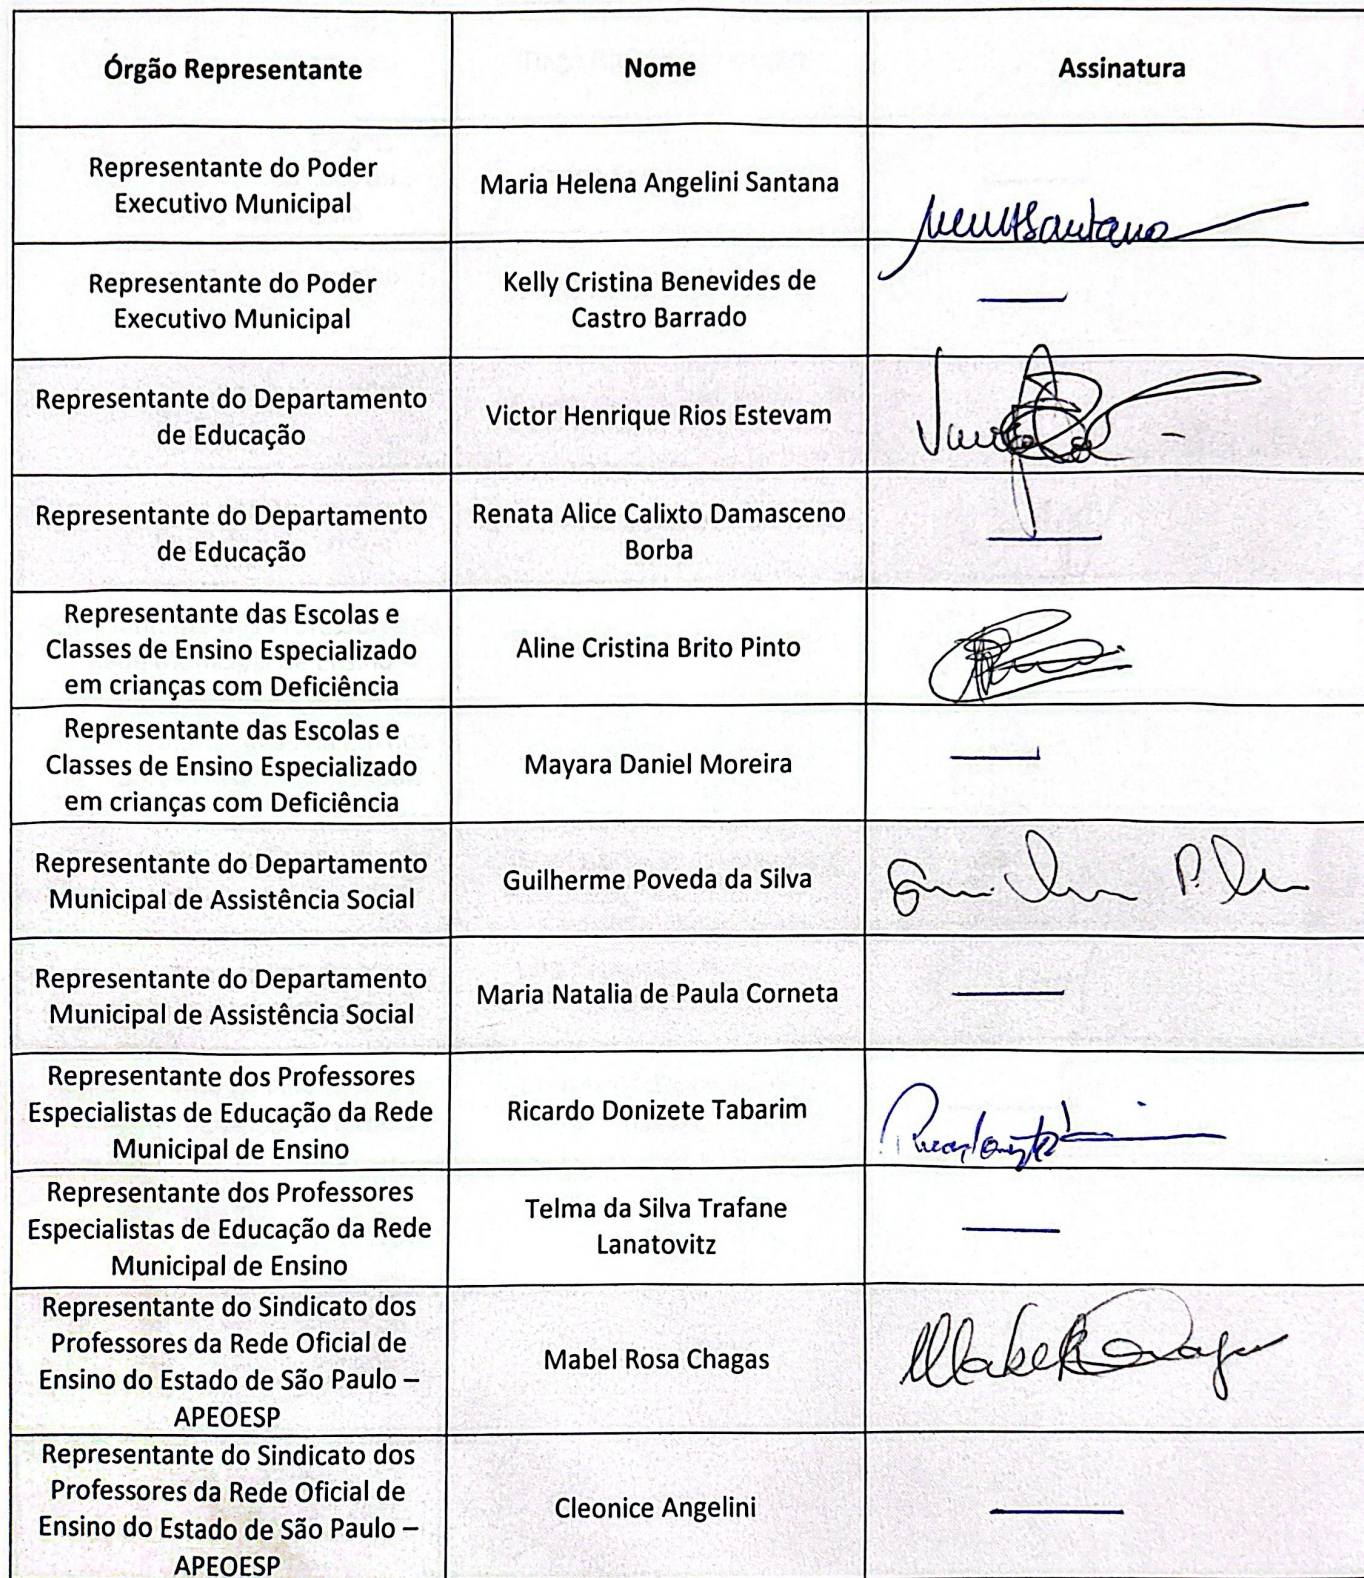 Órgão Representante
Nome
Assinatura
Representante do Poder
Executivo Municipal
Maria Helena Angelini Santana
Representante do Poder
Executivo Municipal
Kelly Cristina Benevides de
Castro Barrado
Representante do Departamento
de Educação
Victor Henrique Rios Estevam
Representante do Departamento
de Educação
Renata Alice Calixto Damasceno
Borba
Representante das Escolas e
Classes de Ensino Especializado
em crianças com Deficiência
Aline Cristina Brito Pinto
Representante das Escolas e
Classes de Ensino Especializado
em crianças com Deficiência
Mayara Daniel Moreira
Representante do Departamento
Municipal de Assistência Social
Guilherme Poveda da Silva
Representante do Departamento
Municipal de Assistência Social
Maria Natalia de Paula Corneta
Representante dos Professores
Especialistas de Educação da Rede
Municipal de Ensino
Ricardo Donizete Tabarim
Representante dos Professores
Especialistas de Educação da Rede
Municipal de Ensino
Telma da Silva Trafane
Lanatovitz
Representante do Sindicato dos
Professores da Rede Oficial de
Ensino do Estado de São Paulo –
APEOESP
Mabel Rosa Chagas
Representante do Sindicato dos
Professores da Rede Oficial de
Ensino do Estado de São Paulo –
APEOESP
Cleonice Angelini